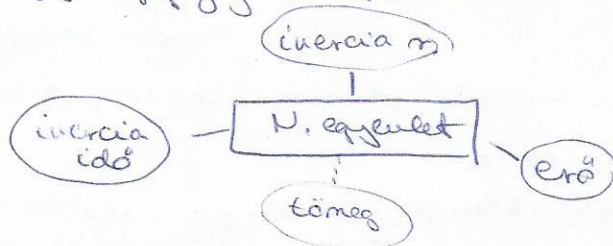 inercia r
inercia
idő
N. egyenlet
erő
tömeg